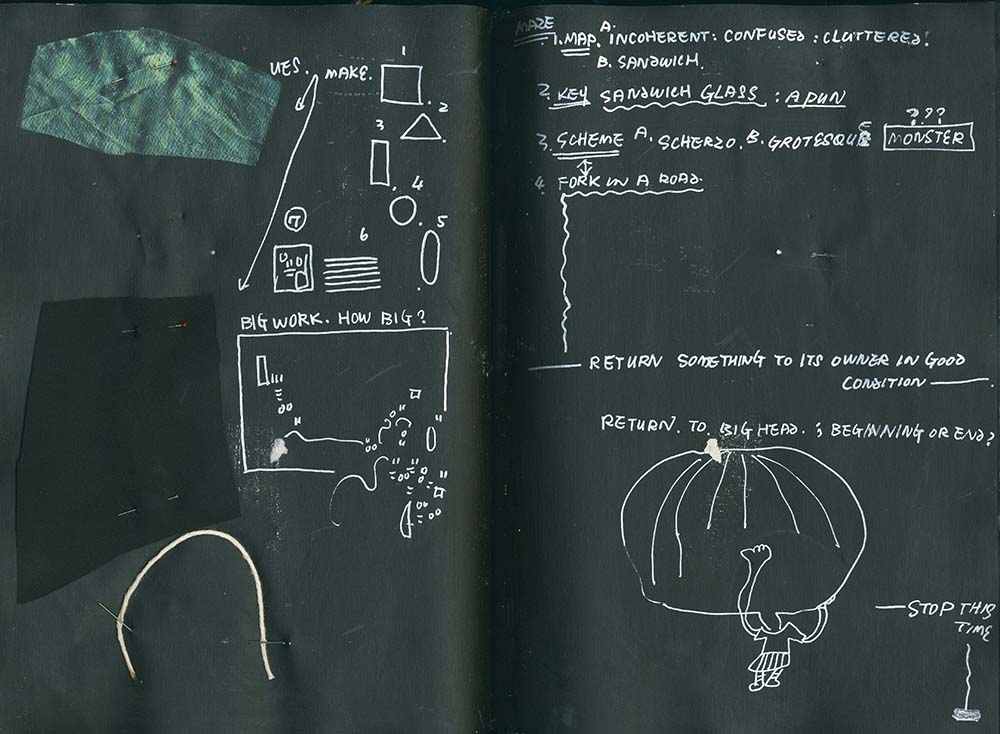 UES. MAKE.
1
2
3
4
5
6
7
BIG WORK. HOW BIG?
MAZE
1. MAP. A. INCOHERENT: CONFUSED: CLUTTERED.
B. SANDWICH.
2. KEY SANDWICH GLASS : A PUN
???
3. SCHEME A. SCHERZO. B. GROTESQUE MONSTER
4. FORK IN A ROAD.
RETURN SOMETHING TO ITS OWNER IN GOOD
CONDITION
RETURN. TO. BIG HEAD. ; BEGINNING OR END?
STOP THIS
TIME